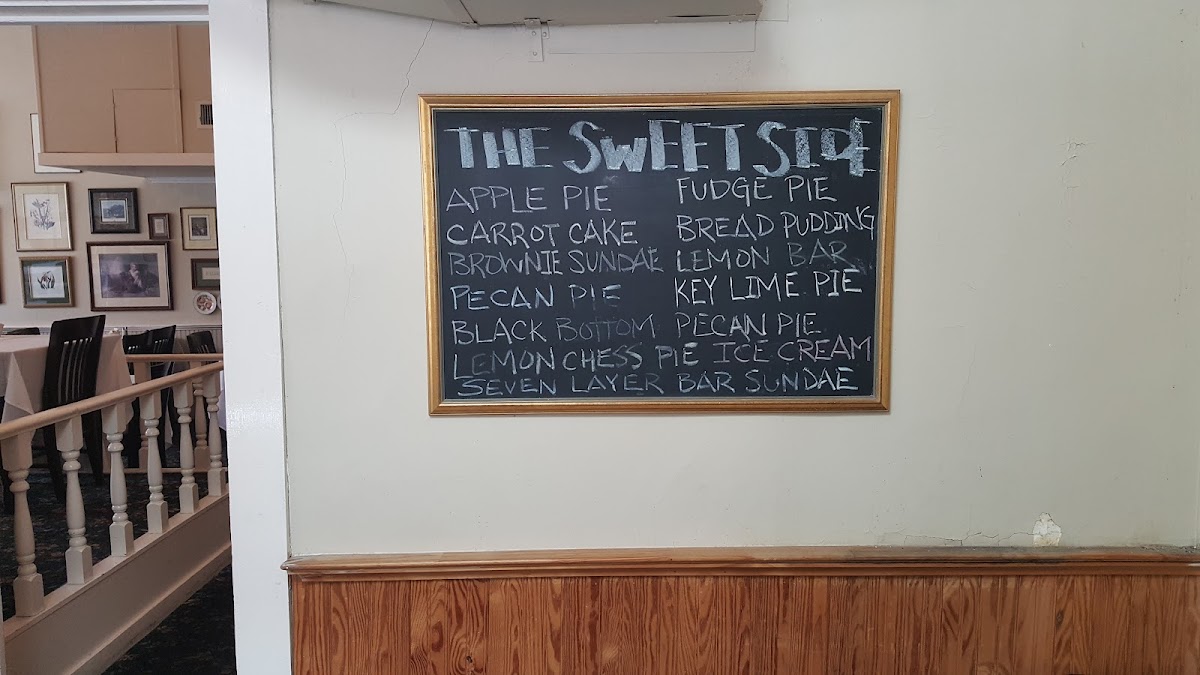 THE SWEET SIDE
APPLE PIE FUDGE PIE
CARROT CAKE BREAD PUDDING
BROWNIE SUNDAE LEMON BAR
PECAN PIE KEY LIME PIE
BLACK BOTTOM PECAN PIE
LEMON CHESS PIE ICE CREAM
SEVEN LAYER BAR SUNDAE